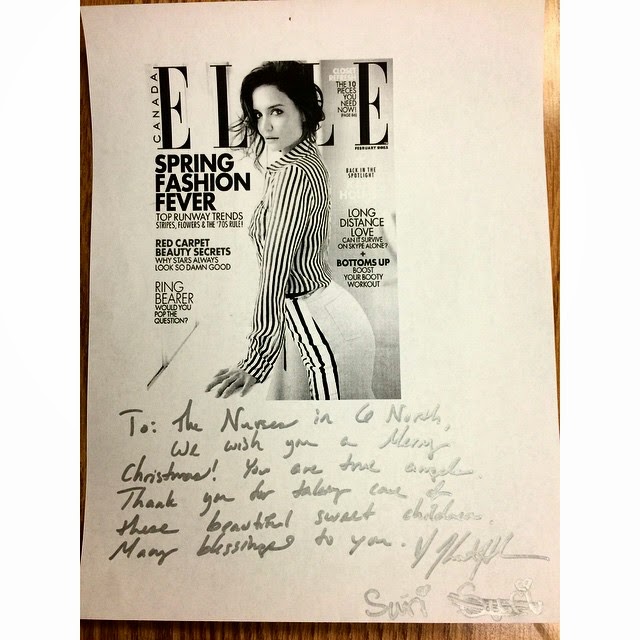 CANADA
ELLE
CLOSET
THE 10
PIECES
YOU
NEED
NOW!
FEBRUARY 2015
SPRING
FASHION
FEVER
TOP RUNWAY TRENDS
STRIPES, FLOWERS & THE '70S RULE!
RED CARPET
BEAUTY SECRETS
WHY STARS ALWAYS
LOOK SO DAMN GOOD
RING
BEARER
WOULD YOU
POP THE
QUESTION?
BACK IN THE
SPOTLIGHT
LONG
DISTANCE
LOVE
CAN IT SURVIVE
ON SKYPE ALONE?
+
BOTTOMS UP
BOOST
YOUR BOOTY
WORKOUT
To: The Nurses in 6 North,
We wish you a Merry
Christmas! You are true angels.
Thank you for taking care of
these beautiful sweet children.
Many blessings to you.
Suri Suri